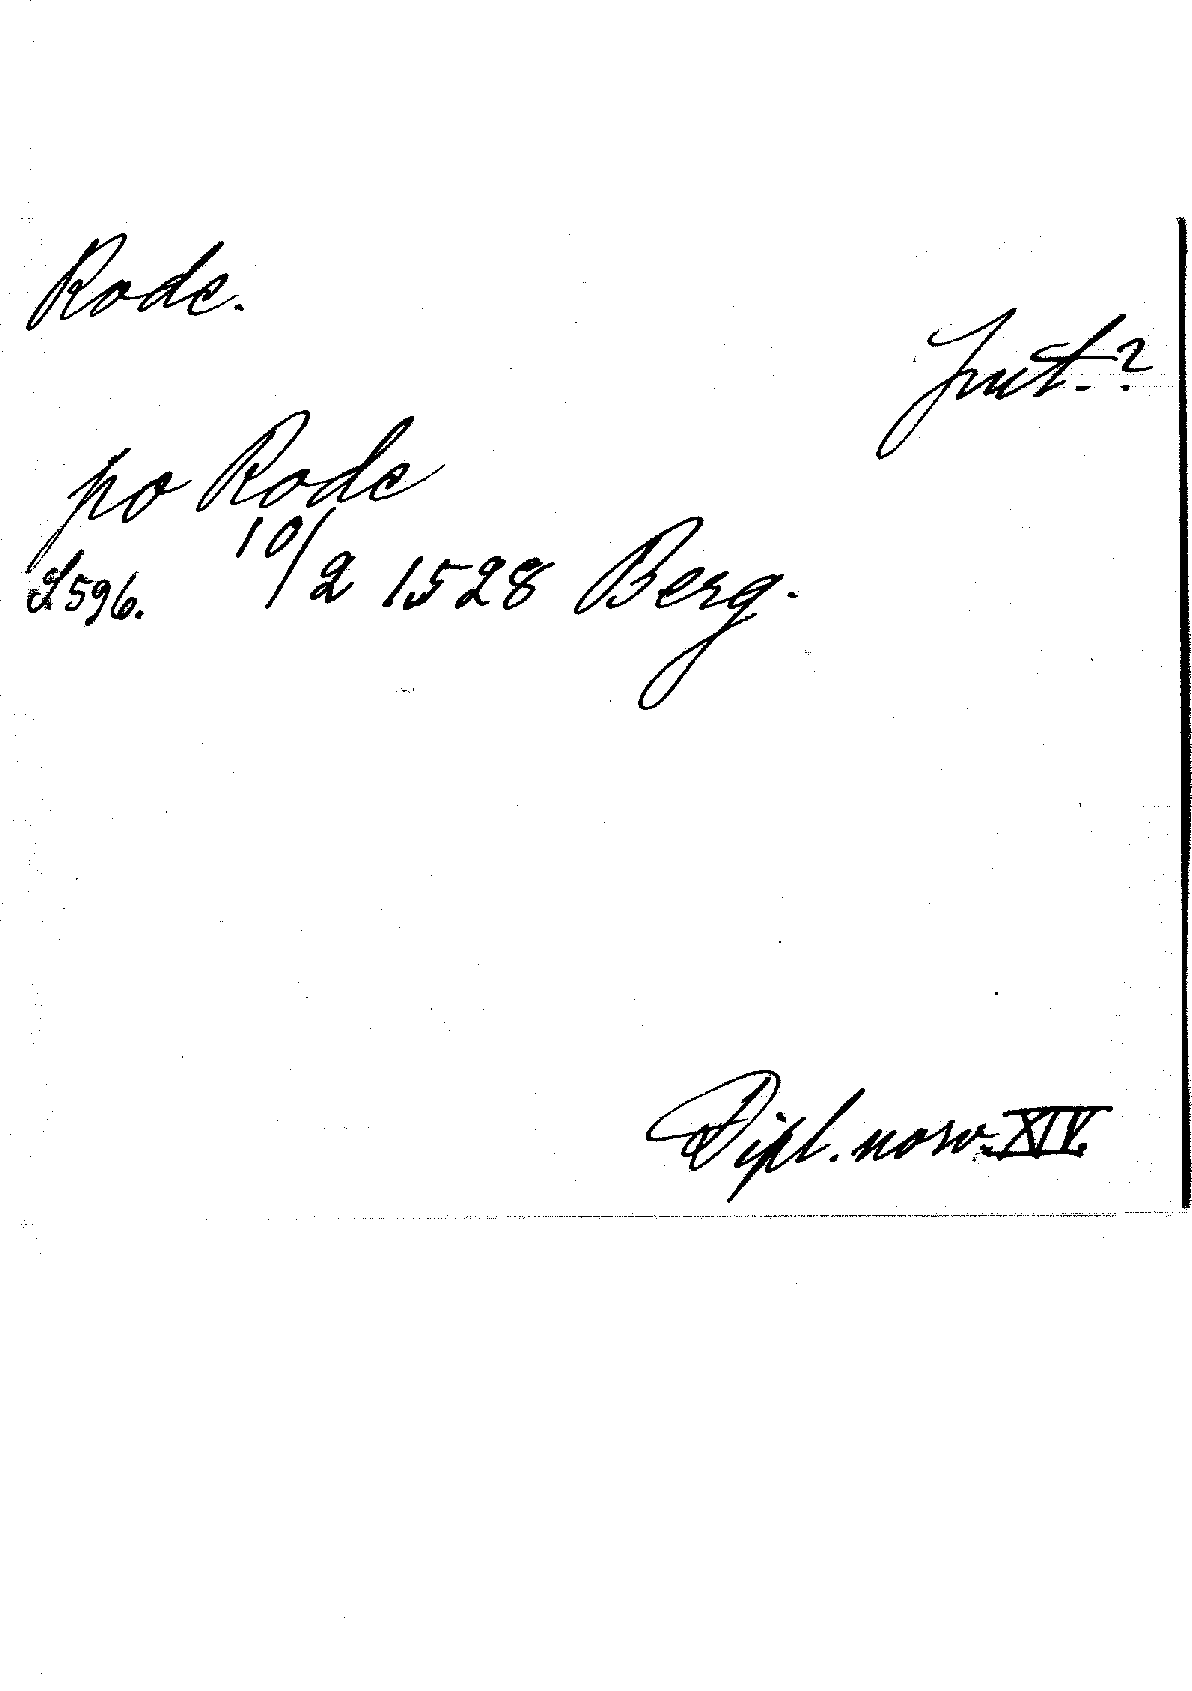 Rode.
Jnst.?
po Rode
S 596. 10/2 1528 Berg.
Dipl. norv. XIV.